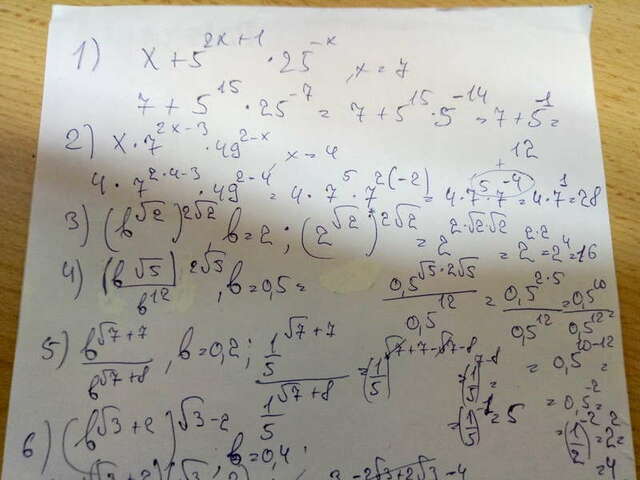 1) x + 5^{2x+1} · 25^{-x}, x = 7
7 + 5^{15} · 25^{-7} = 7 + 5^{15} · 5^{-14} = 7 + 5^{1} =
12
2) x · 7^{2x-3} · 49^{2-x}, x = 4
4 · 7^{2·4-3} · 49^{2-4} = 4 · 7^{5} · 7^{2(-2)} = 4 · 7^{5} · 7^{-4} = 4 · 7^{1} = 28
3) (b^{√2})^{2√2}, b = 2; (2^{√2})^{2√2} = 2^{2·√2·√2} = 2^{2·2} = 2^{4} = 16
4) (b^{√5})^{2√5} / b^{12}, b = 0,5 = 0,5^{√5·2√5} / 0,5^{12} = 0,5^{2·5} / 0,5^{12} = 0,5^{10} / 0,5^{12} =
= 0,5^{10-12}
= 0,5^{-2} =
= (1/2)^{-2} = 2^{2} =
= 4
5) b^{√7+7} / b^{√7+8}, b = 0,2; 1/5^{√7+7} / 1/5^{√7+8} = (1/5)^{√7+7-√7-8} = (1/5)^{7-8} =
= (1/5)^{-1} = 5
6) (b^{√3+2})^{√3-2}; b = 0,4;
3 - 2√3 + 2√3 - 4